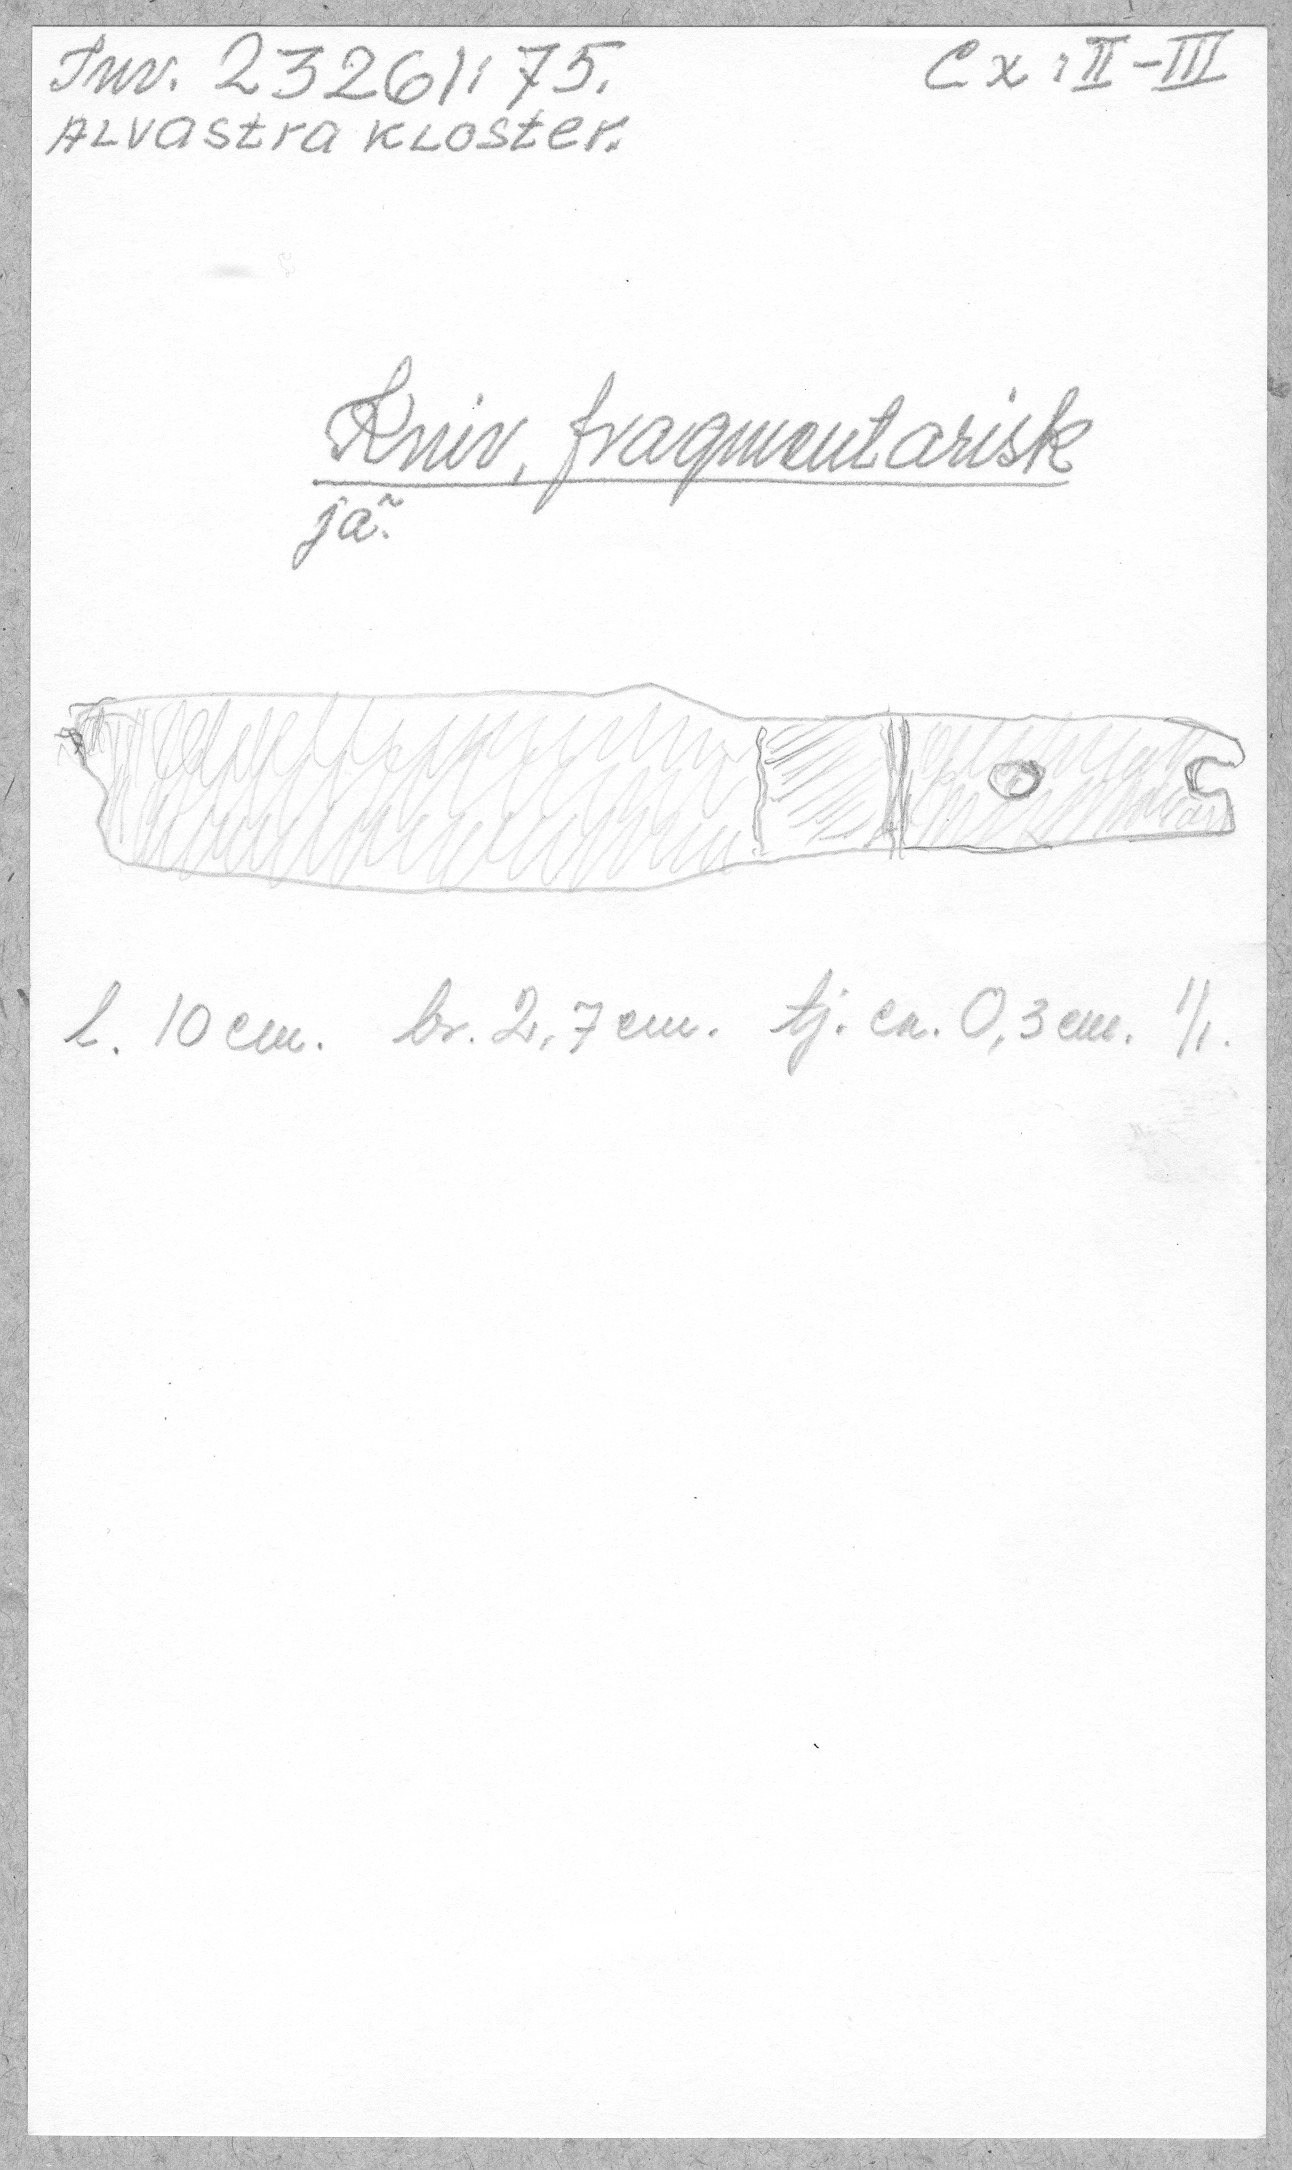 Inv. 23261:75.
Cx:II-III
ALvastra KLoster.
Kniv, fragmentarisk
jä.
l. 10 cm. br. 2,7 cm. tj. ca. 0,3 cm. 1/1.